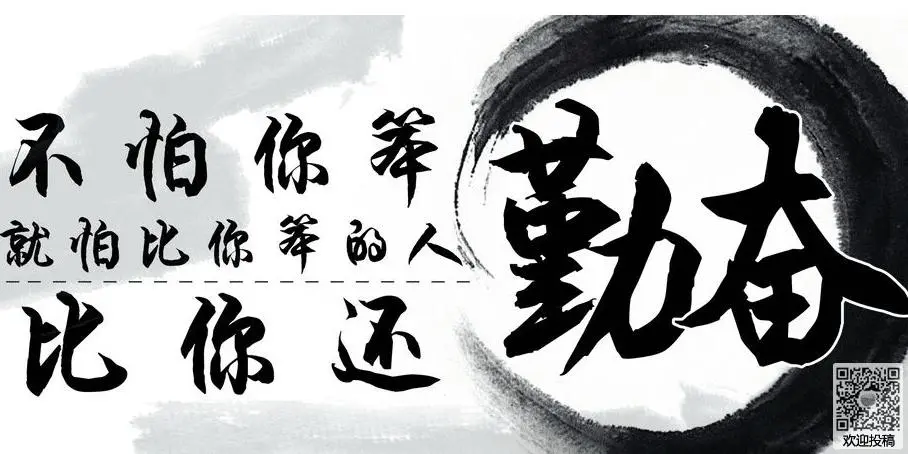 不怕你笨
就怕比你笨的人
比你还
勤奋
欢迎投稿